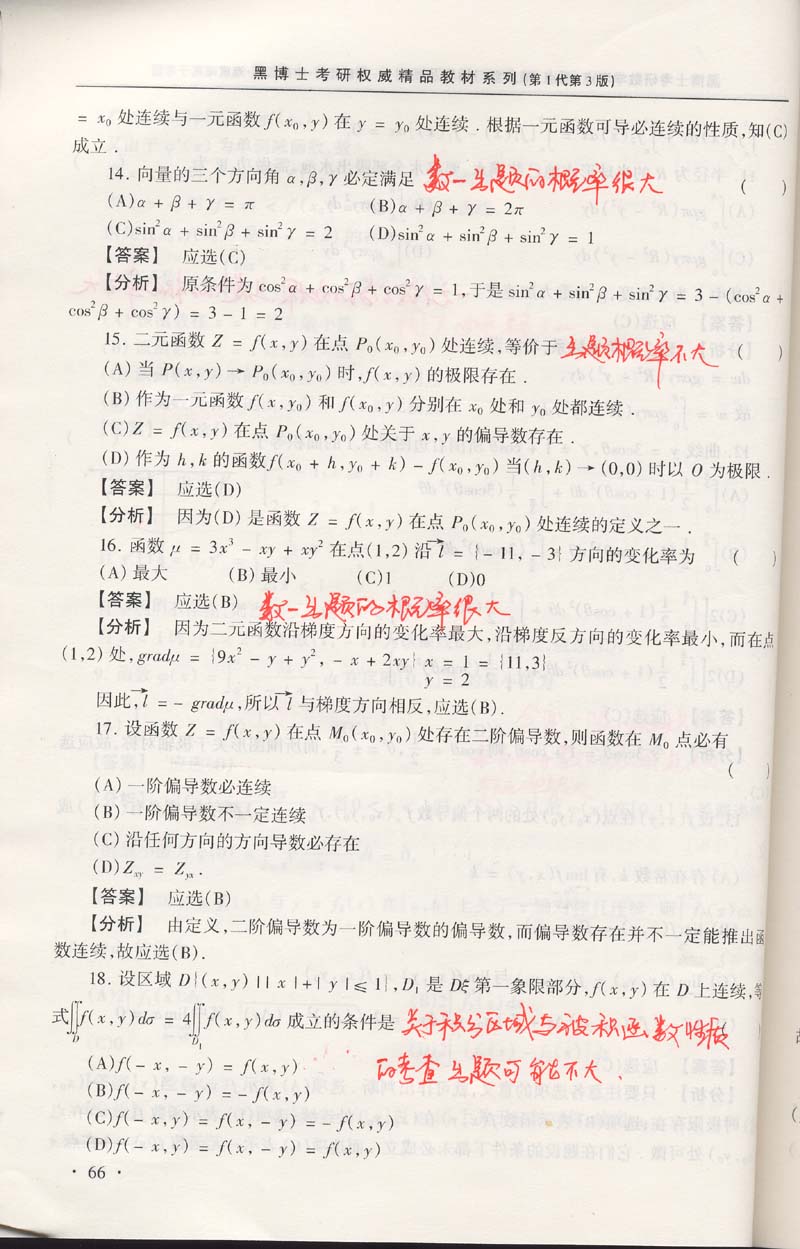 黑博士考研权威精品教材系列(第1代第3版)
= x₀ 处连续与一元函数 f(x₀,y) 在 y = y₀ 处连续．根据一元函数可导必连续的性质,知(C)
成立．
14. 向量的三个方向角 α,β,γ 必定满足 数一出题的概率很大 (　)
(A)α + β + γ = π (B)α + β + γ = 2π
(C)sin²α + sin²β + sin²γ = 2 (D)sin²α + sin²β + sin²γ = 1
【答案】 应选(C)
【分析】 原条件为 cos²α + cos²β + cos²γ = 1,于是 sin²α + sin²β + sin²γ = 3 - (cos²α +
cos²β + cos²γ) = 3 - 1 = 2
15. 二元函数 Z = f(x,y) 在点 P₀(x₀,y₀) 处连续,等价于 出题概率不大 (　)
(A) 当 P(x,y) → P₀(x₀,y₀) 时,f(x,y) 的极限存在．
(B) 作为一元函数 f(x,y₀) 和 f(x₀,y) 分别在 x₀ 处和 y₀ 处都连续．
(C)Z = f(x,y) 在点 P₀(x₀,y₀) 处关于 x,y 的偏导数存在．
(D) 作为 h,k 的函数 f(x₀ + h,y₀ + k) - f(x₀,y₀) 当(h,k) → (0,0) 时以 O 为极限．
【答案】 应选(D)
【分析】 因为(D) 是函数 Z = f(x,y) 在点 P₀(x₀,y₀) 处连续的定义之一．
16. 函数 μ = 3x³ - xy + xy² 在点(1,2) 沿 l⃗ = {- 11, - 3} 方向的变化率为 (　)
(A) 最大 (B) 最小 (C)1 (D)0
【答案】 应选(B) 数一出题的概率很大
【分析】 因为二元函数沿梯度方向的变化率最大,沿梯度反方向的变化率最小,而在点
(1,2) 处,gradμ = {9x² - y + y², - x + 2xy} x = 1 = {11,3}
y = 2
因此,l⃗ = - gradμ,所以 l⃗ 与梯度方向相反,应选(B).
17. 设函数 Z = f(x,y) 在点 M₀(x₀,y₀) 处存在二阶偏导数,则函数在 M₀ 点必有
(　)
(A) 一阶偏导数必连续
(B) 一阶偏导数不一定连续
(C) 沿任何方向的方向导数必存在
(D)Zxy = Zyx．
【答案】 应选(B)
【分析】 由定义,二阶偏导数为一阶偏导数的偏导数,而偏导数存在并不一定能推出函
数连续,故应选(B).
18. 设区域 D{(x,y) || x |+| y |≤ 1},D₁ 是 D 第一象限部分,f(x,y) 在 D 上连续,等
式∬_D f(x,y)dσ = 4∬_D₁ f(x,y)dσ 成立的条件是 关于积分区域与被积函数性质
的考查出题可能不大．
(A)f(- x, - y) = f(x,y)
(B)f(- x, - y) = - f(x,y)
(C)f(- x,y) = f(x, - y) = - f(x,y)
(D)f(- x,y) = f(x, - y) = f(x,y)
· 66 ·